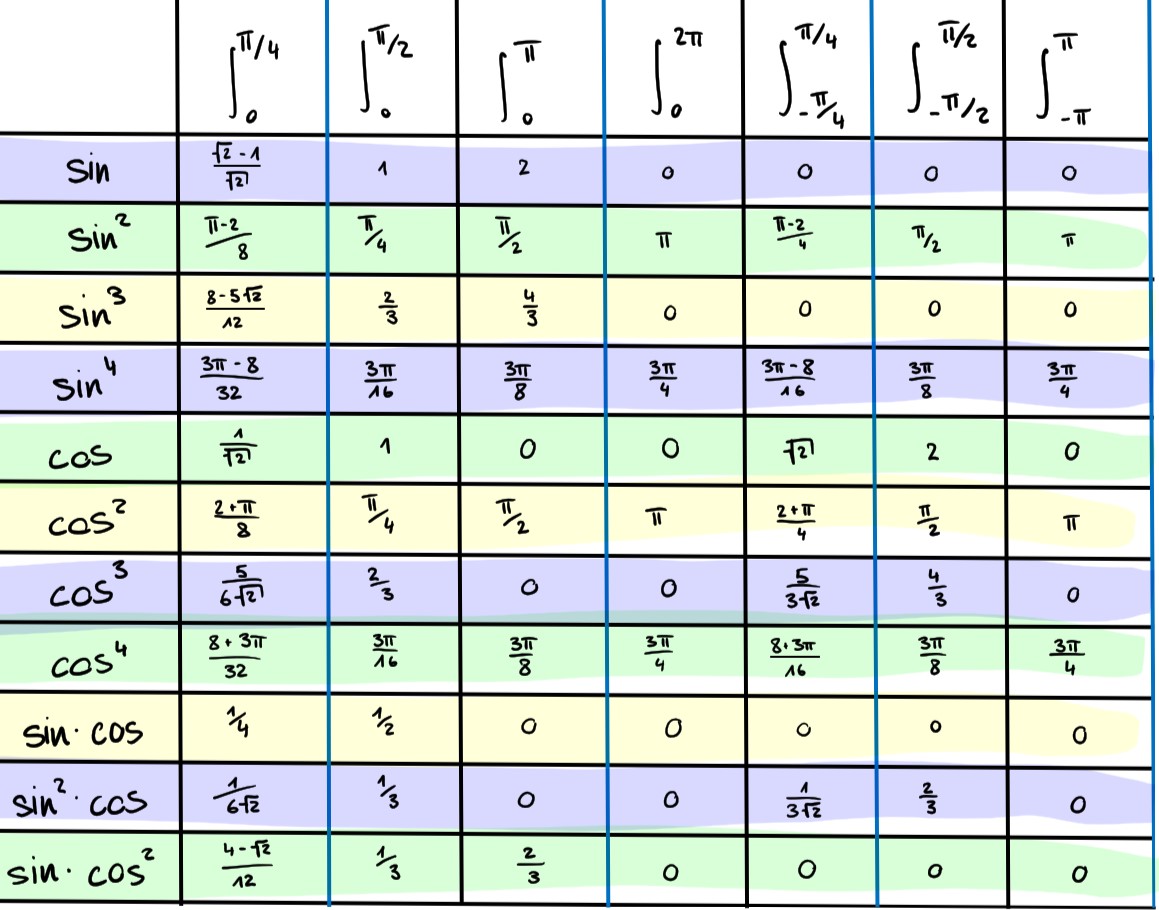 ∫₀^π/4 ∫₀^π/2 ∫₀^π ∫₀^2π ∫₋π/4^π/4 ∫₋π/2^π/2 ∫₋π^π
sin (√2-1)/√2 1 2 0 0 0 0
sin² (π-2)/8 π/4 π/2 π (π-2)/4 π/2 π
sin³ (8-5√2)/12 2/3 4/3 0 0 0 0
sin⁴ (3π-8)/32 3π/16 3π/8 3π/4 (3π-8)/16 3π/8 3π/4
cos 1/√2 1 0 0 √2 2 0
cos² (2+π)/8 π/4 π/2 π (2+π)/4 π/2 π
cos³ 5/(6√2) 2/3 0 0 5/(3√2) 4/3 0
cos⁴ (8+3π)/32 3π/16 3π/8 3π/4 (8+3π)/16 3π/8 3π/4
sin·cos 1/4 1/2 0 0 0 0 0
sin²·cos 1/(6√2) 1/3 0 0 1/(3√2) 2/3 0
sin·cos² (4-√2)/12 1/3 2/3 0 0 0 0